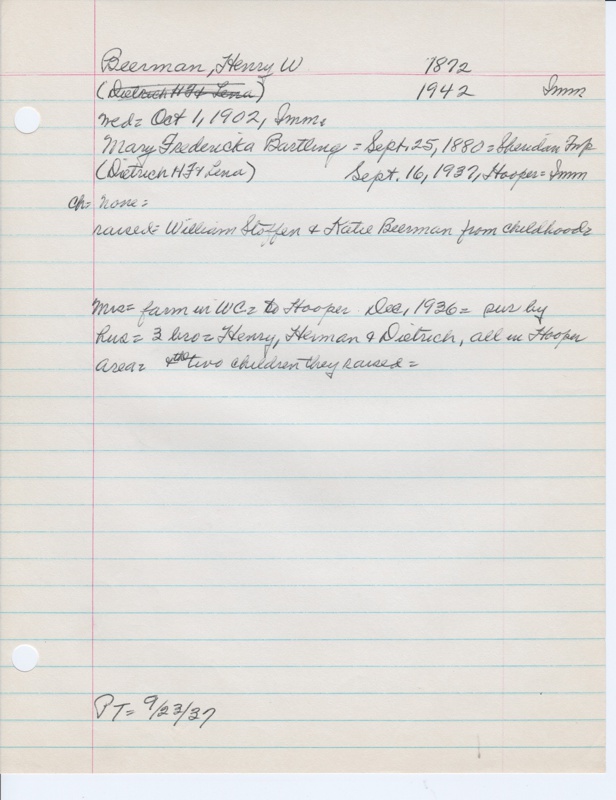 Beerman, Henry W 1872
(Dietrich H F & Lena) 1942 Imm
wed= Oct 1, 1902, Imm.
Mary Fredericka Bartling = Sept. 25, 1880= Sheridan Twp
(Dietrich H F & Lena) Sept. 16, 1937, Hooper= Imm
ch= none=
raised= William Stoffen & Katie Beerman from childhood=
Mrs= farm in WC= to Hooper Dec, 1936= sur by
hus= 3 bro= Henry, Herman & Dietrich, all in Hooper
area= & the two children they raised=
PT= 9/23/37